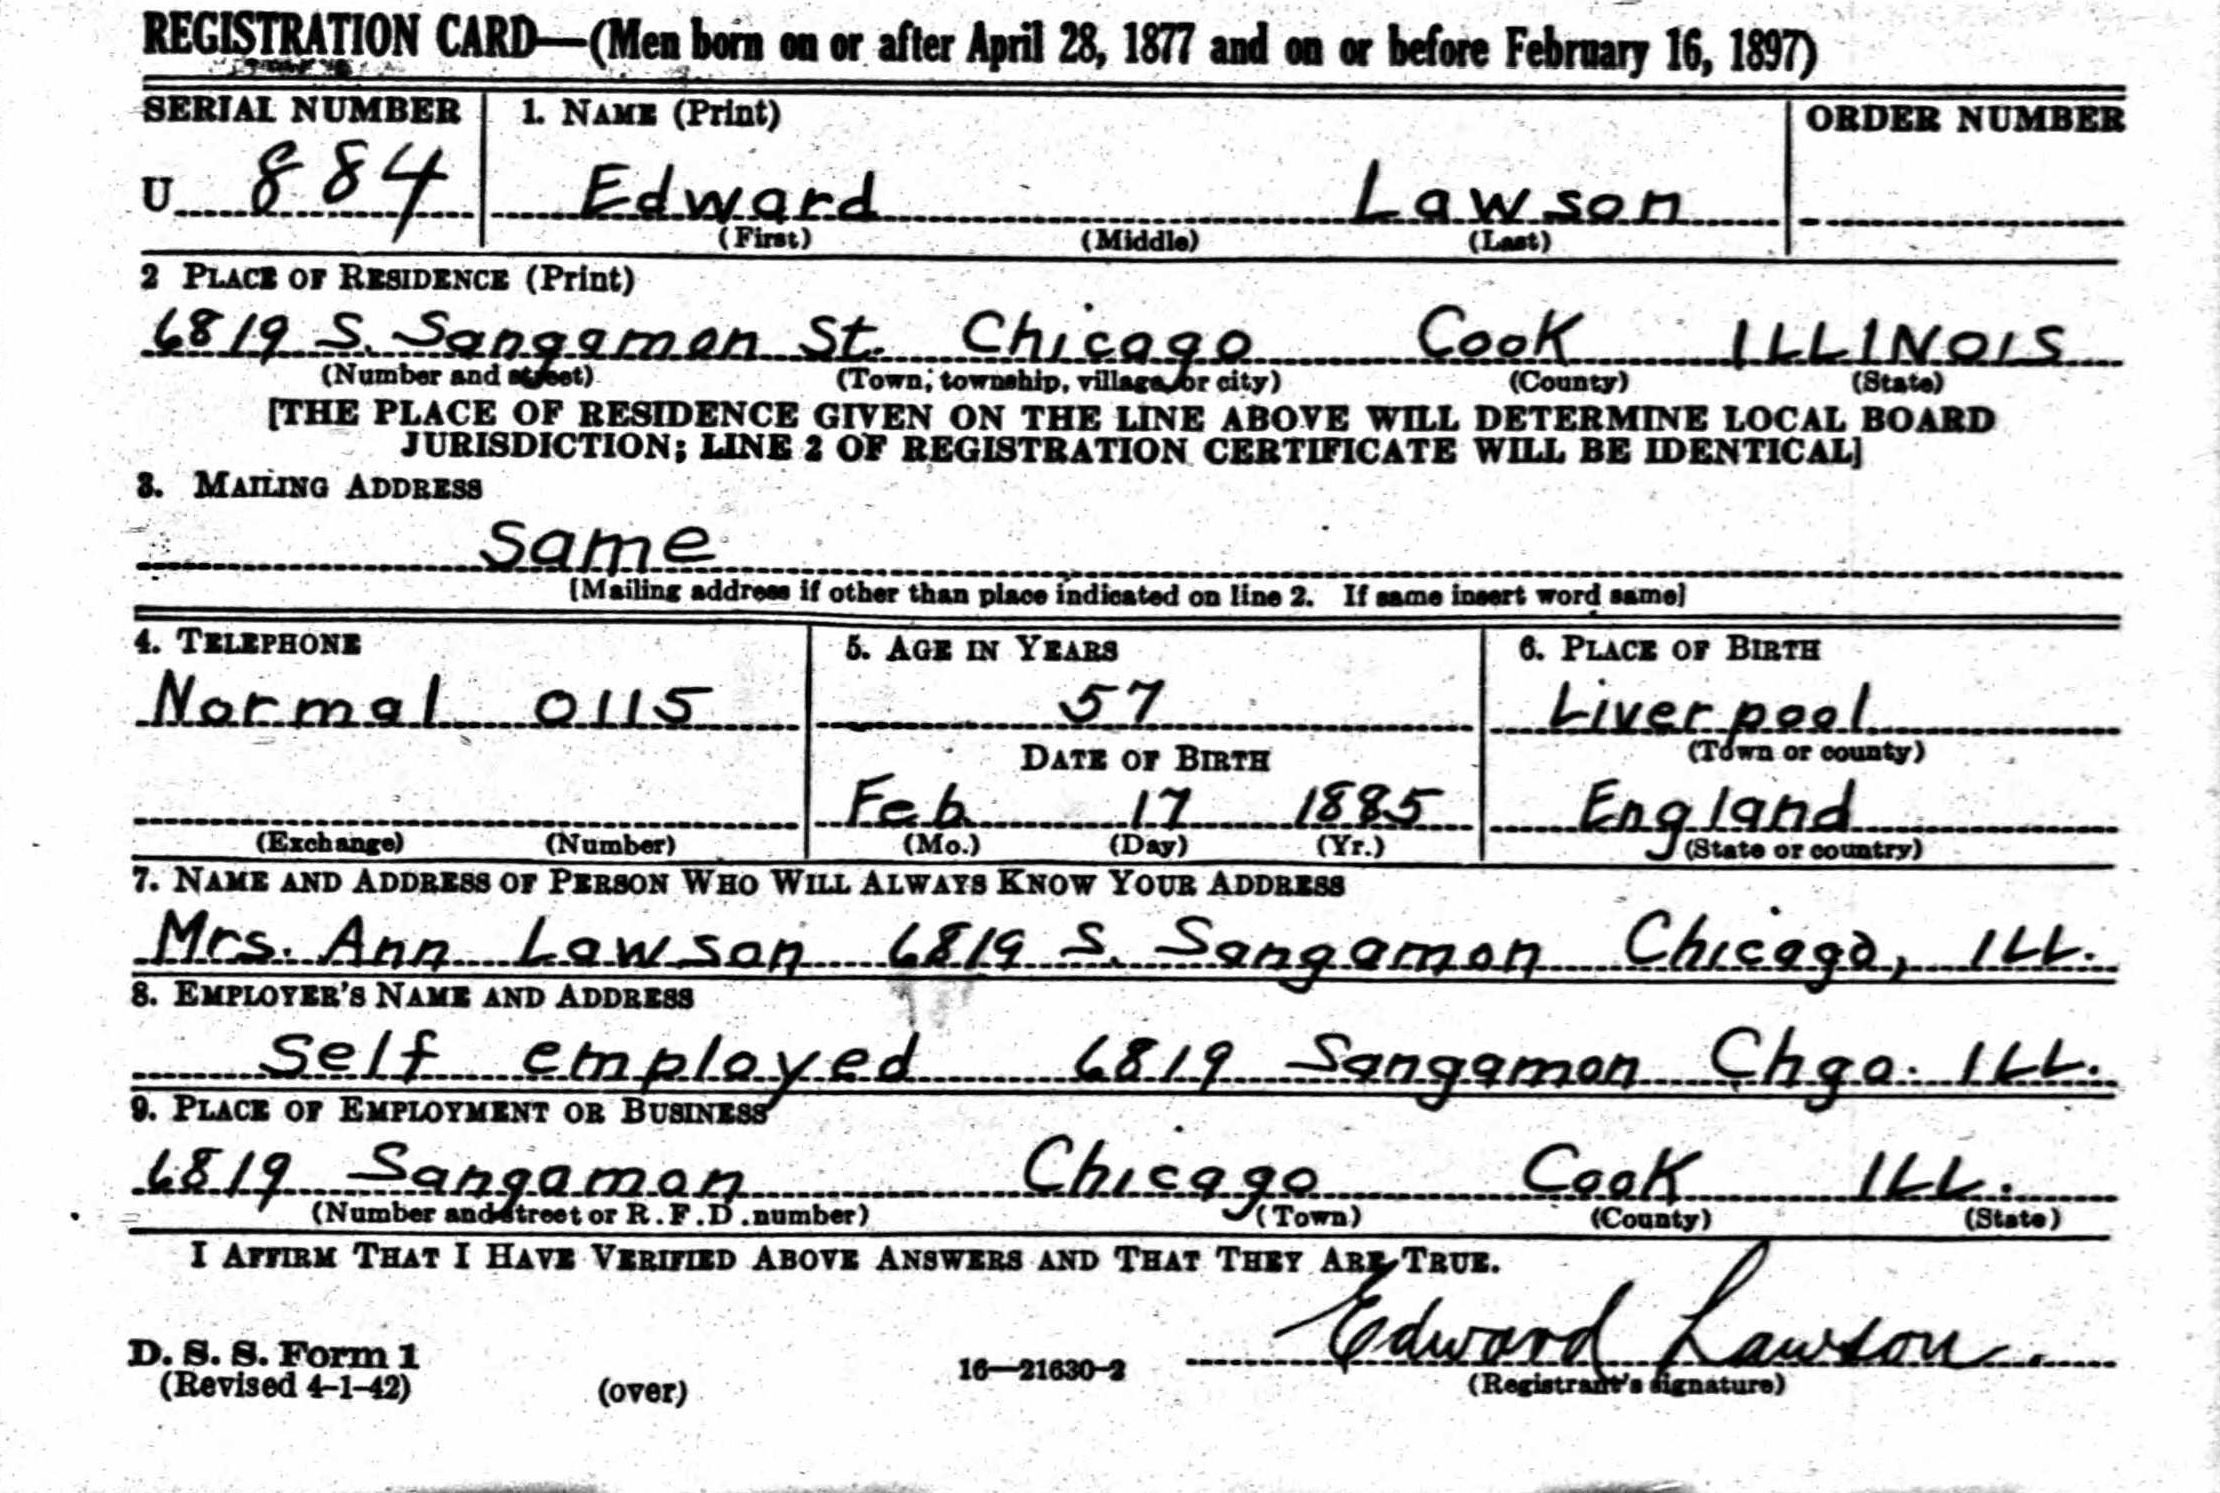 REGISTRATION CARD—(Men born on or after April 28, 1877 and on or before February 16, 1897)
SERIAL NUMBER 1. NAME (Print) ORDER NUMBER
U 884 Edward Lawson
(First) (Middle) (Last)
2 PLACE OF RESIDENCE (Print)
6819 S. Sangamon St. Chicago Cook ILLINOIS
(Number and street) (Town, township, village or city) (County) (State)
[THE PLACE OF RESIDENCE GIVEN ON THE LINE ABOVE WILL DETERMINE LOCAL BOARD
JURISDICTION; LINE 2 OF REGISTRATION CERTIFICATE WILL BE IDENTICAL]
3. MAILING ADDRESS
Same
[Mailing address if other than place indicated on line 2. If same insert word same]
4. TELEPHONE 5. AGE IN YEARS 6. PLACE OF BIRTH
Normal 0115 57 Liverpool
DATE OF BIRTH (Town or county)
Feb 17 1885 England
(Exchange) (Number) (Mo.) (Day) (Yr.) (State or country)
7. NAME AND ADDRESS OF PERSON WHO WILL ALWAYS KNOW YOUR ADDRESS
Mrs. Ann Lawson 6819 S. Sangamon Chicago, ILL.
8. EMPLOYER'S NAME AND ADDRESS
Self employed 6819 Sangamon Chgo. ILL.
9. PLACE OF EMPLOYMENT OR BUSINESS
6819 Sangamon Chicago Cook ILL.
(Number and street or R.F.D. number) (Town) (County) (State)
I AFFIRM THAT I HAVE VERIFIED ABOVE ANSWERS AND THAT THEY ARE TRUE.
Edward Lawson
D. S. S. Form 1
(Revised 4-1-42) (over) 16—21630-2 (Registrant's signature)